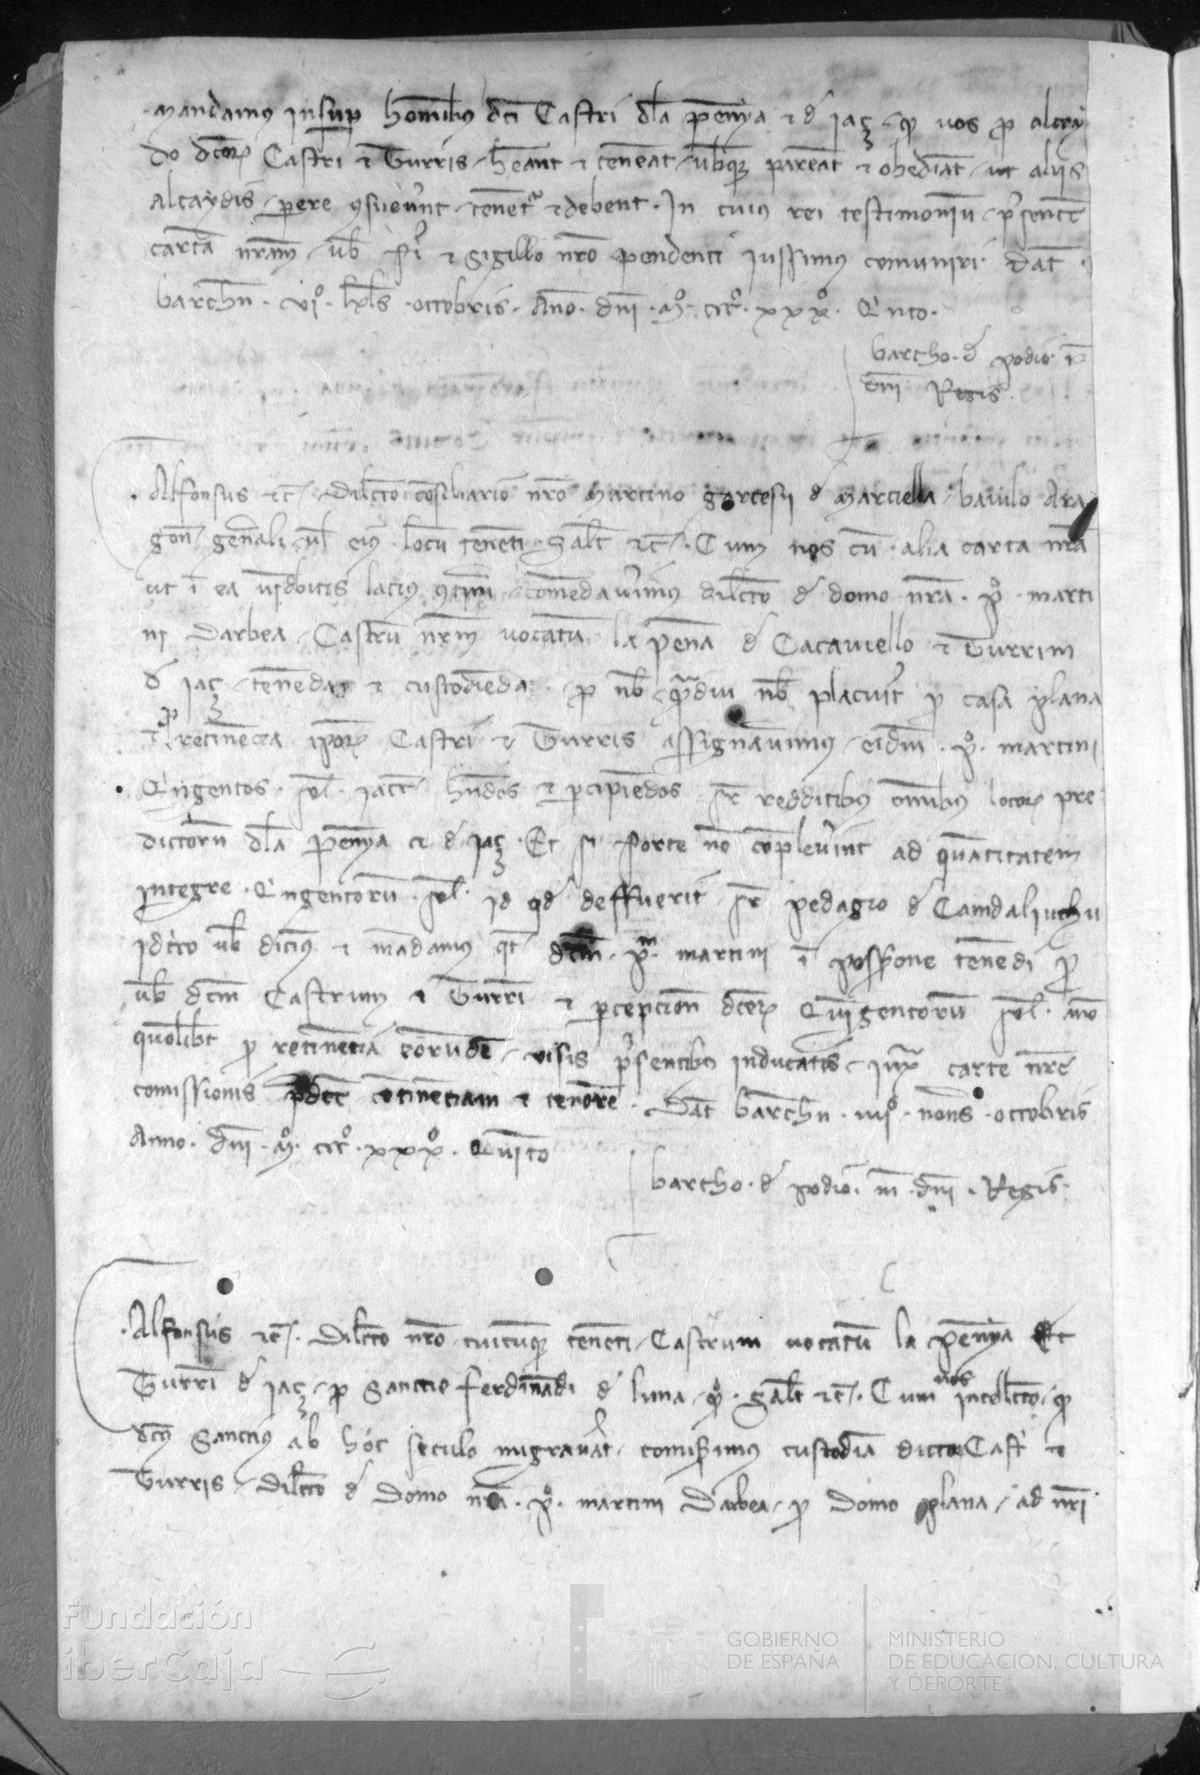 mandamus insup hominibus dci Castri dla penya et de iacz quod vos pro alcay
do dcorum Castri et Turris heant et teneat vobisque pareant et obediant ut aliis
alcaydis parere consueverunt tenentur et debent. In cuius rei testimonium presente
carta nram vob fieri et Sigillo nro pendenti iussimus comuniri. dat
barchn. vi°. kls. octobris. Anno. dni. M°. CCC°. xxx°. Quinto.
bartho. de podio. ex
dni Regis
Alfonsus etc. Dilecto consiliario nro Martino garcesii de Marciella baiulo Ara
gon generali vel eius locum tenenti. Salt etc. Cum nos cum alia carta nra
ut in ea videbitis lacius contineri comendaverimus dilecto de domo nra. P°. marti
ni Darbea Castrum nrm vocatum la pena de Cacaviello et Turrim
de iacz tenenda et custodienda pro nob quamdiu nob placuerit pro casa plana
et pro retinencia ipsorum Castri et Turris assignavimus eidem. P°. martini
Quingentos. sol. iacc habendos et percipiendos super redditibus omnibus locorum pre
dictorum dla penya et de iacz. Et si forte non compleverint ad quantitatem
integre Quingentorum. sol. id quod deffuerit super pedagio de Camdaliuchu
Idcirco vob dicimus et mandamus quatenus dcm. P. martini in possessione tenendi pro
nob dcm Castrum et Turrim et percepcione dcorum Quingentorum sol. anno
quolibet pro retinencia eorundem visis presentibus inducatis iuxta carte nre
comissionis predicte continenciam et tenorem. Dat barchn. iiii°. nonas. octobris
Anno. dni. M°. CCC°. xxx°. Quinto
bartho. de podio. m. dni. Regis.
Alfonsus etc. Dilecto nro cuicumque tenenti Castrum vocatum la penya Et
Turrim de iacz pro Sanccio ferdinandi de luna. q°. Salt etc. Cum nos intellecto quod
dcus Sanccius ab hoc seculo migraverat comiserimus custodiam dictor Castri et
Turris dilecto de domo nra. P°. martini Darbea pro domo plana ad nri
Fundación
iberCaja
GOBIERNO
DE ESPAÑA
MINISTERIO
DE EDUCACIÓN, CULTURA
Y DEPORTE